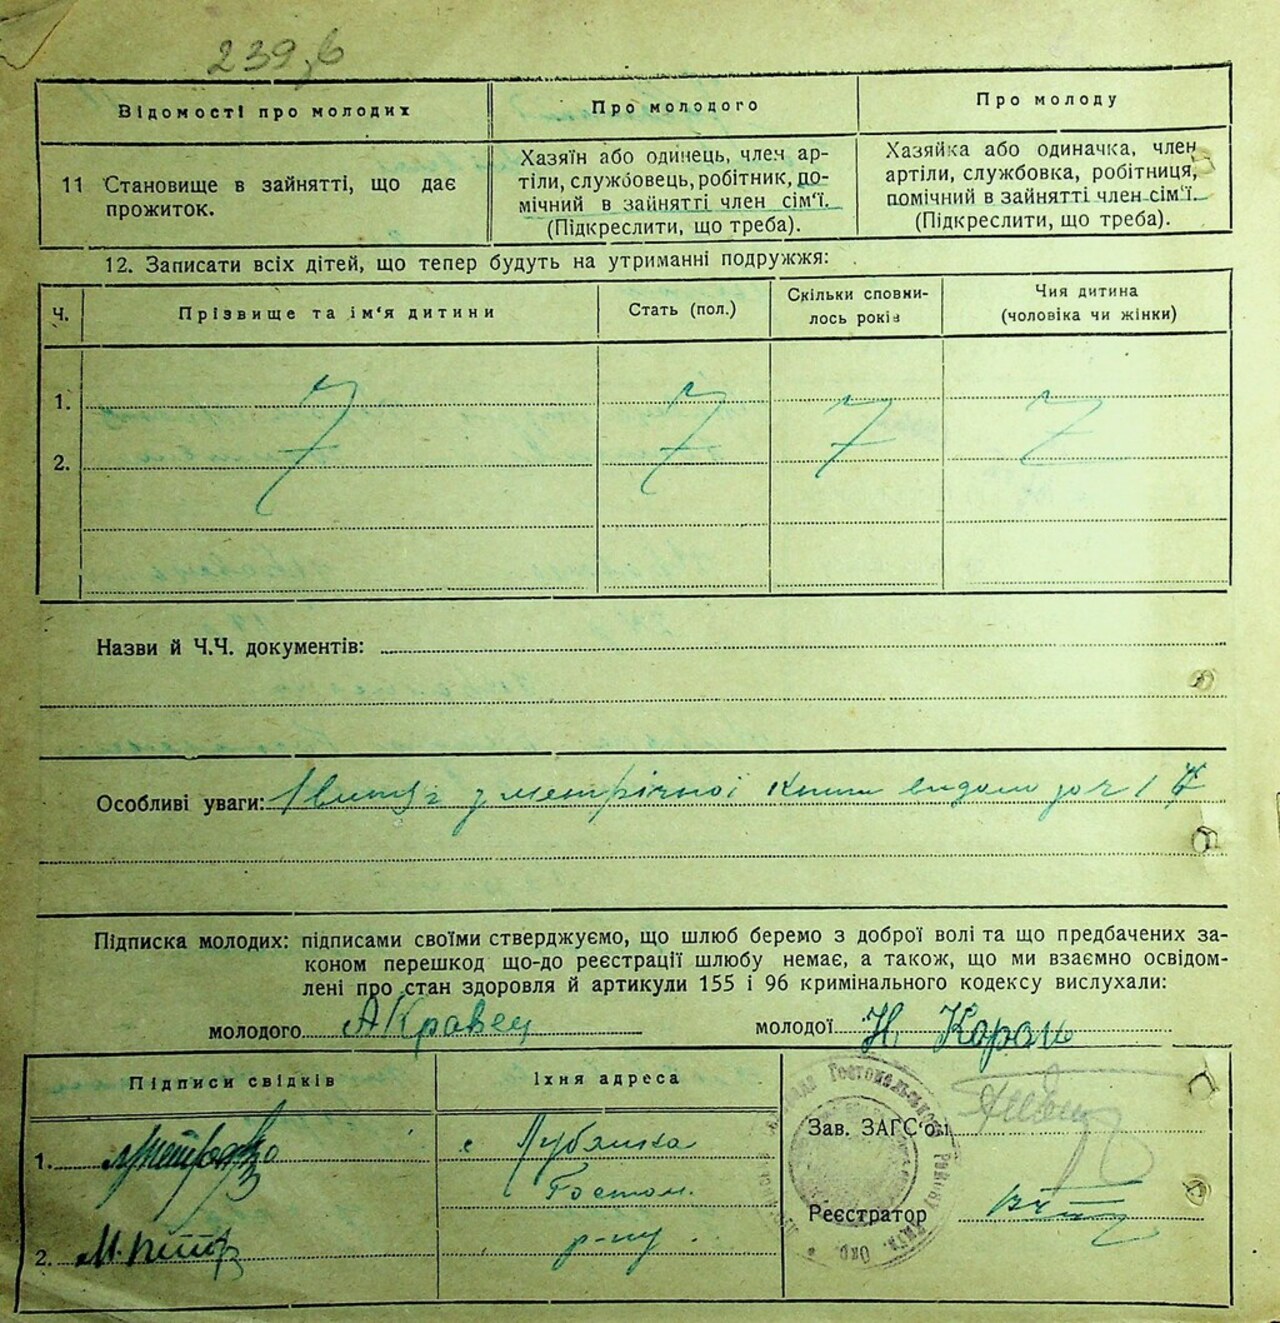 239,б
Відомості про молодих
Про молодого
Про молоду
11 Становище в зайнятті, що дає
прожиток.
Хазяїн або одинець, член ар-
тіли, службовець, робітник, по-
мічний в зайнятті член сім'ї.
(Підкреслити, що треба).
Хазяйка або одиначка, член
артіли, службовка, робітниця,
помічний в зайнятті член сім'ї.
(Підкреслити, що треба).
12. Записати всіх дітей, що тепер будуть на утриманні подружжя:
Ч.
Прізвище та ім'я дитини
Стать (пол.)
Скільки сповни-
лось років
Чия дитина
(чоловіка чи жінки)
1.
2.
Назви й Ч.Ч. документів:
Особливі уваги: з метрічної книги видано за ч 1
Підписка молодих: підписами своїми стверджуємо, що шлюб беремо з доброї волі та що предбачених за-
коном перешкод що-до реєстрації шлюбу немає, а також, що ми взаємно освідом-
лені про стан здоровля й артикули 155 і 96 кримінального кодексу вислухали:
молодого АКравец
молодої Н. Король
Підписи свідків
Їхня адреса
1.
с Лубянка
Гостом.
2.
р-ну
Зав. ЗАГС'ом
Реєстратор